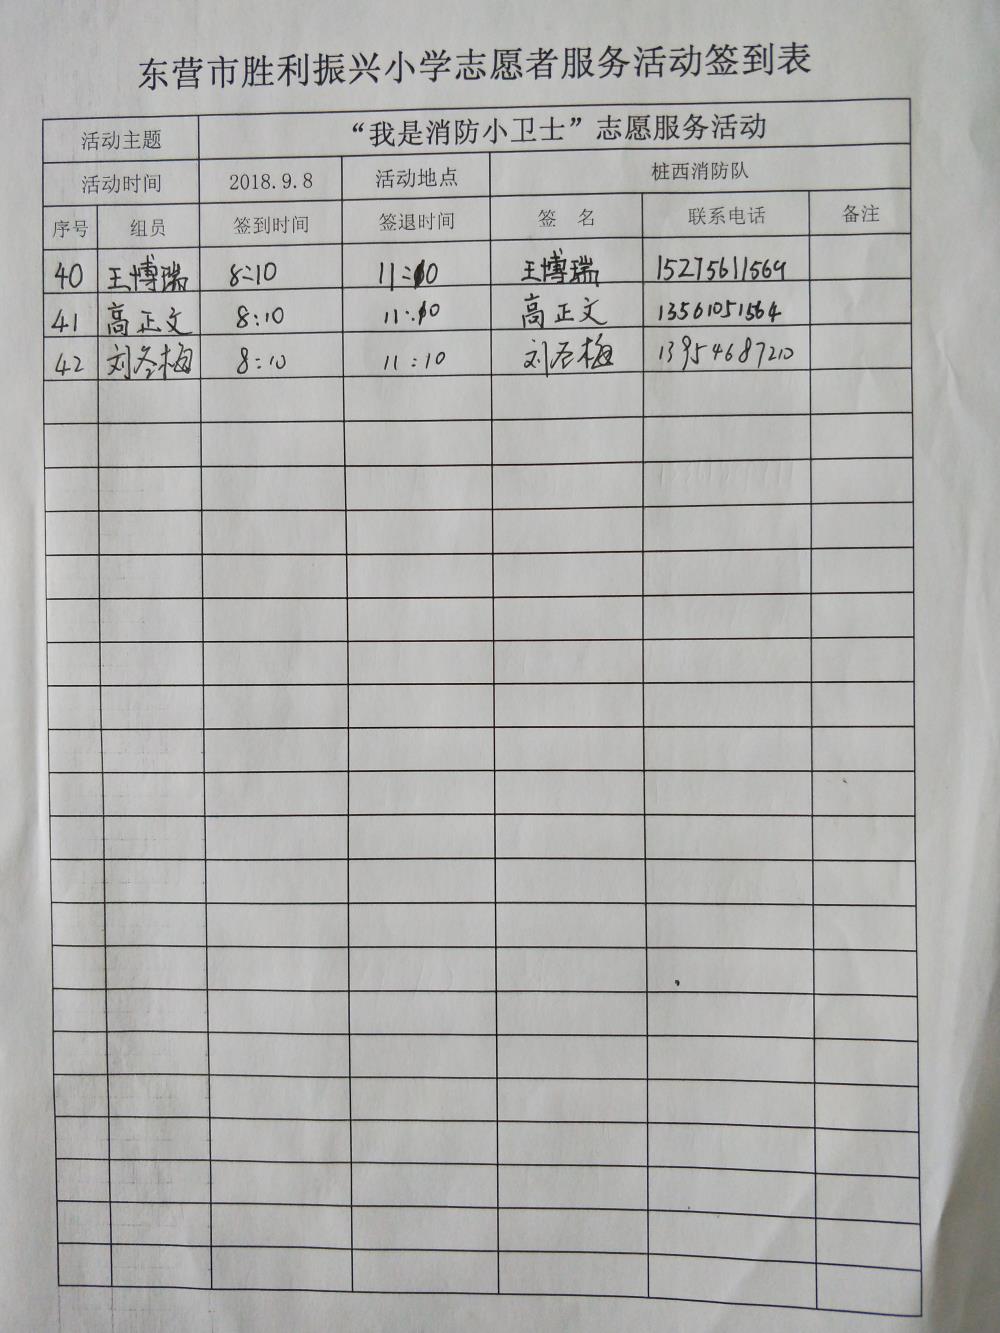 东营市胜利振兴小学志愿者服务活动签到表
活动主题 “我是消防小卫士”志愿服务活动
活动时间 2018.9.8 活动地点 桩西消防队
序号 组员 签到时间 签退时间 签 名 联系电话 备注
40 王博瑞 8:10 11:10 王博瑞 15275611569
41 高正文 8:10 11:10 高正文 13561051564
42 刘冬梅 8:10 11:10 刘冬梅 13954687210